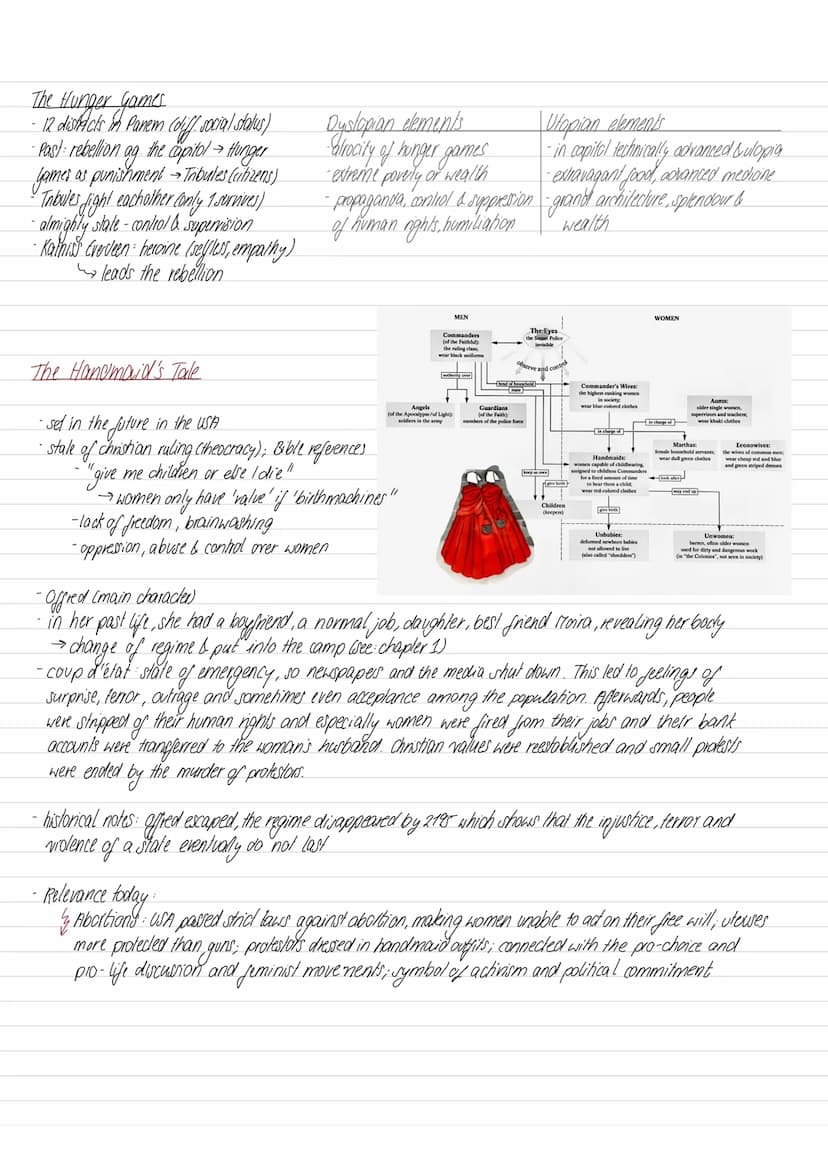 The Hunger Games
- 12 districts in Panem (diff. social status)
- Past: rebellion ag. the capitol → Hunger
Games as punishment → Tributes (citizens)
- Tributes fight eachother (only 1 survives)
- almighty state - control & supervision
- Katniss Everdeen: heroine (selfless, empathy)
↳ leads the rebellion
Dystopian elements
- atrocity of hunger games
- extreme poverty or wealth
- propaganda, control & suppression
of human rights, humiliation
Utopian elements
- in capitol technically advanced & utopia
- extravagant food, advanced medicine
- grand architecture, splendour &
wealth
The Handmaid's Tale
- set in the future in the USA
- state of christian ruling (theocracy); Bible references
- "give me children or else I die"
→ women only have 'value' if 'birthmachines"
- lack of freedom, brainwashing
- oppression, abuse & control over women
MEN
WOMEN
Commanders
(of the Faithful):
the ruling class;
wear black uniforms
The Eyes
the Secret Police
invisible
observe and control
authority over
head of household
mate
Angels
(of the Apocalypse/of Light):
soldiers in the army
Guardians
(of the Faith):
members of the police force
Commander's Wives:
the highest-ranking women
in society;
wear blue-colored clothes
Aunts:
older single women,
supervisors and teachers;
wear khaki clothes
in charge of
in charge of
Marthas:
female household servants;
wear dull green clothes
Econowives:
the wives of common men;
wear cheap red and blue
and green striped dresses
Handmaids:
women capable of childbearing,
assigned to childless Commanders
for a fixed amount of time
to bear them a child;
wear red-colored clothes
keep as own
give birth
look after
may end up
Children
(keepers)
give birth
Unbabies:
deformed newborn babies
not allowed to live
(also called "shredders")
Unwomen:
barren, often older women
used for dirty and dangerous work
(in "the Colonies", not seen in society)
- Offred (main character)
- in her past life, she had a boyfriend, a normal job, daughter, best friend Moira, revealing her body
→ change of regime & put into the camp (see: chapter 1)
- coup d'état: state of emergency, so newspapes and the media shut down. This led to feelings of
surprise, terror, outrage and sometimes even acceptance among the population. Afterwards, people
were stripped of their human rights and especially women were fired from their jobs and their bank
accounts were transferred to the woman's husband. Christian values were reestablished and small protests
were ended by the murder of protestors.
- historical notes: offred escaped, the regime disappeared by 2195 which shows that the injustice, terror and
violence of a state eventually do not last
- Relevance today:
Abortions: USA passed strict laws against abortion, making women unable to act on their free will; uteruses
more protected than guns; protestors dressed in handmaid outfits; connected with the pro-choice and
pro-life discussion and feminist movements; symbol of activism and political commitment